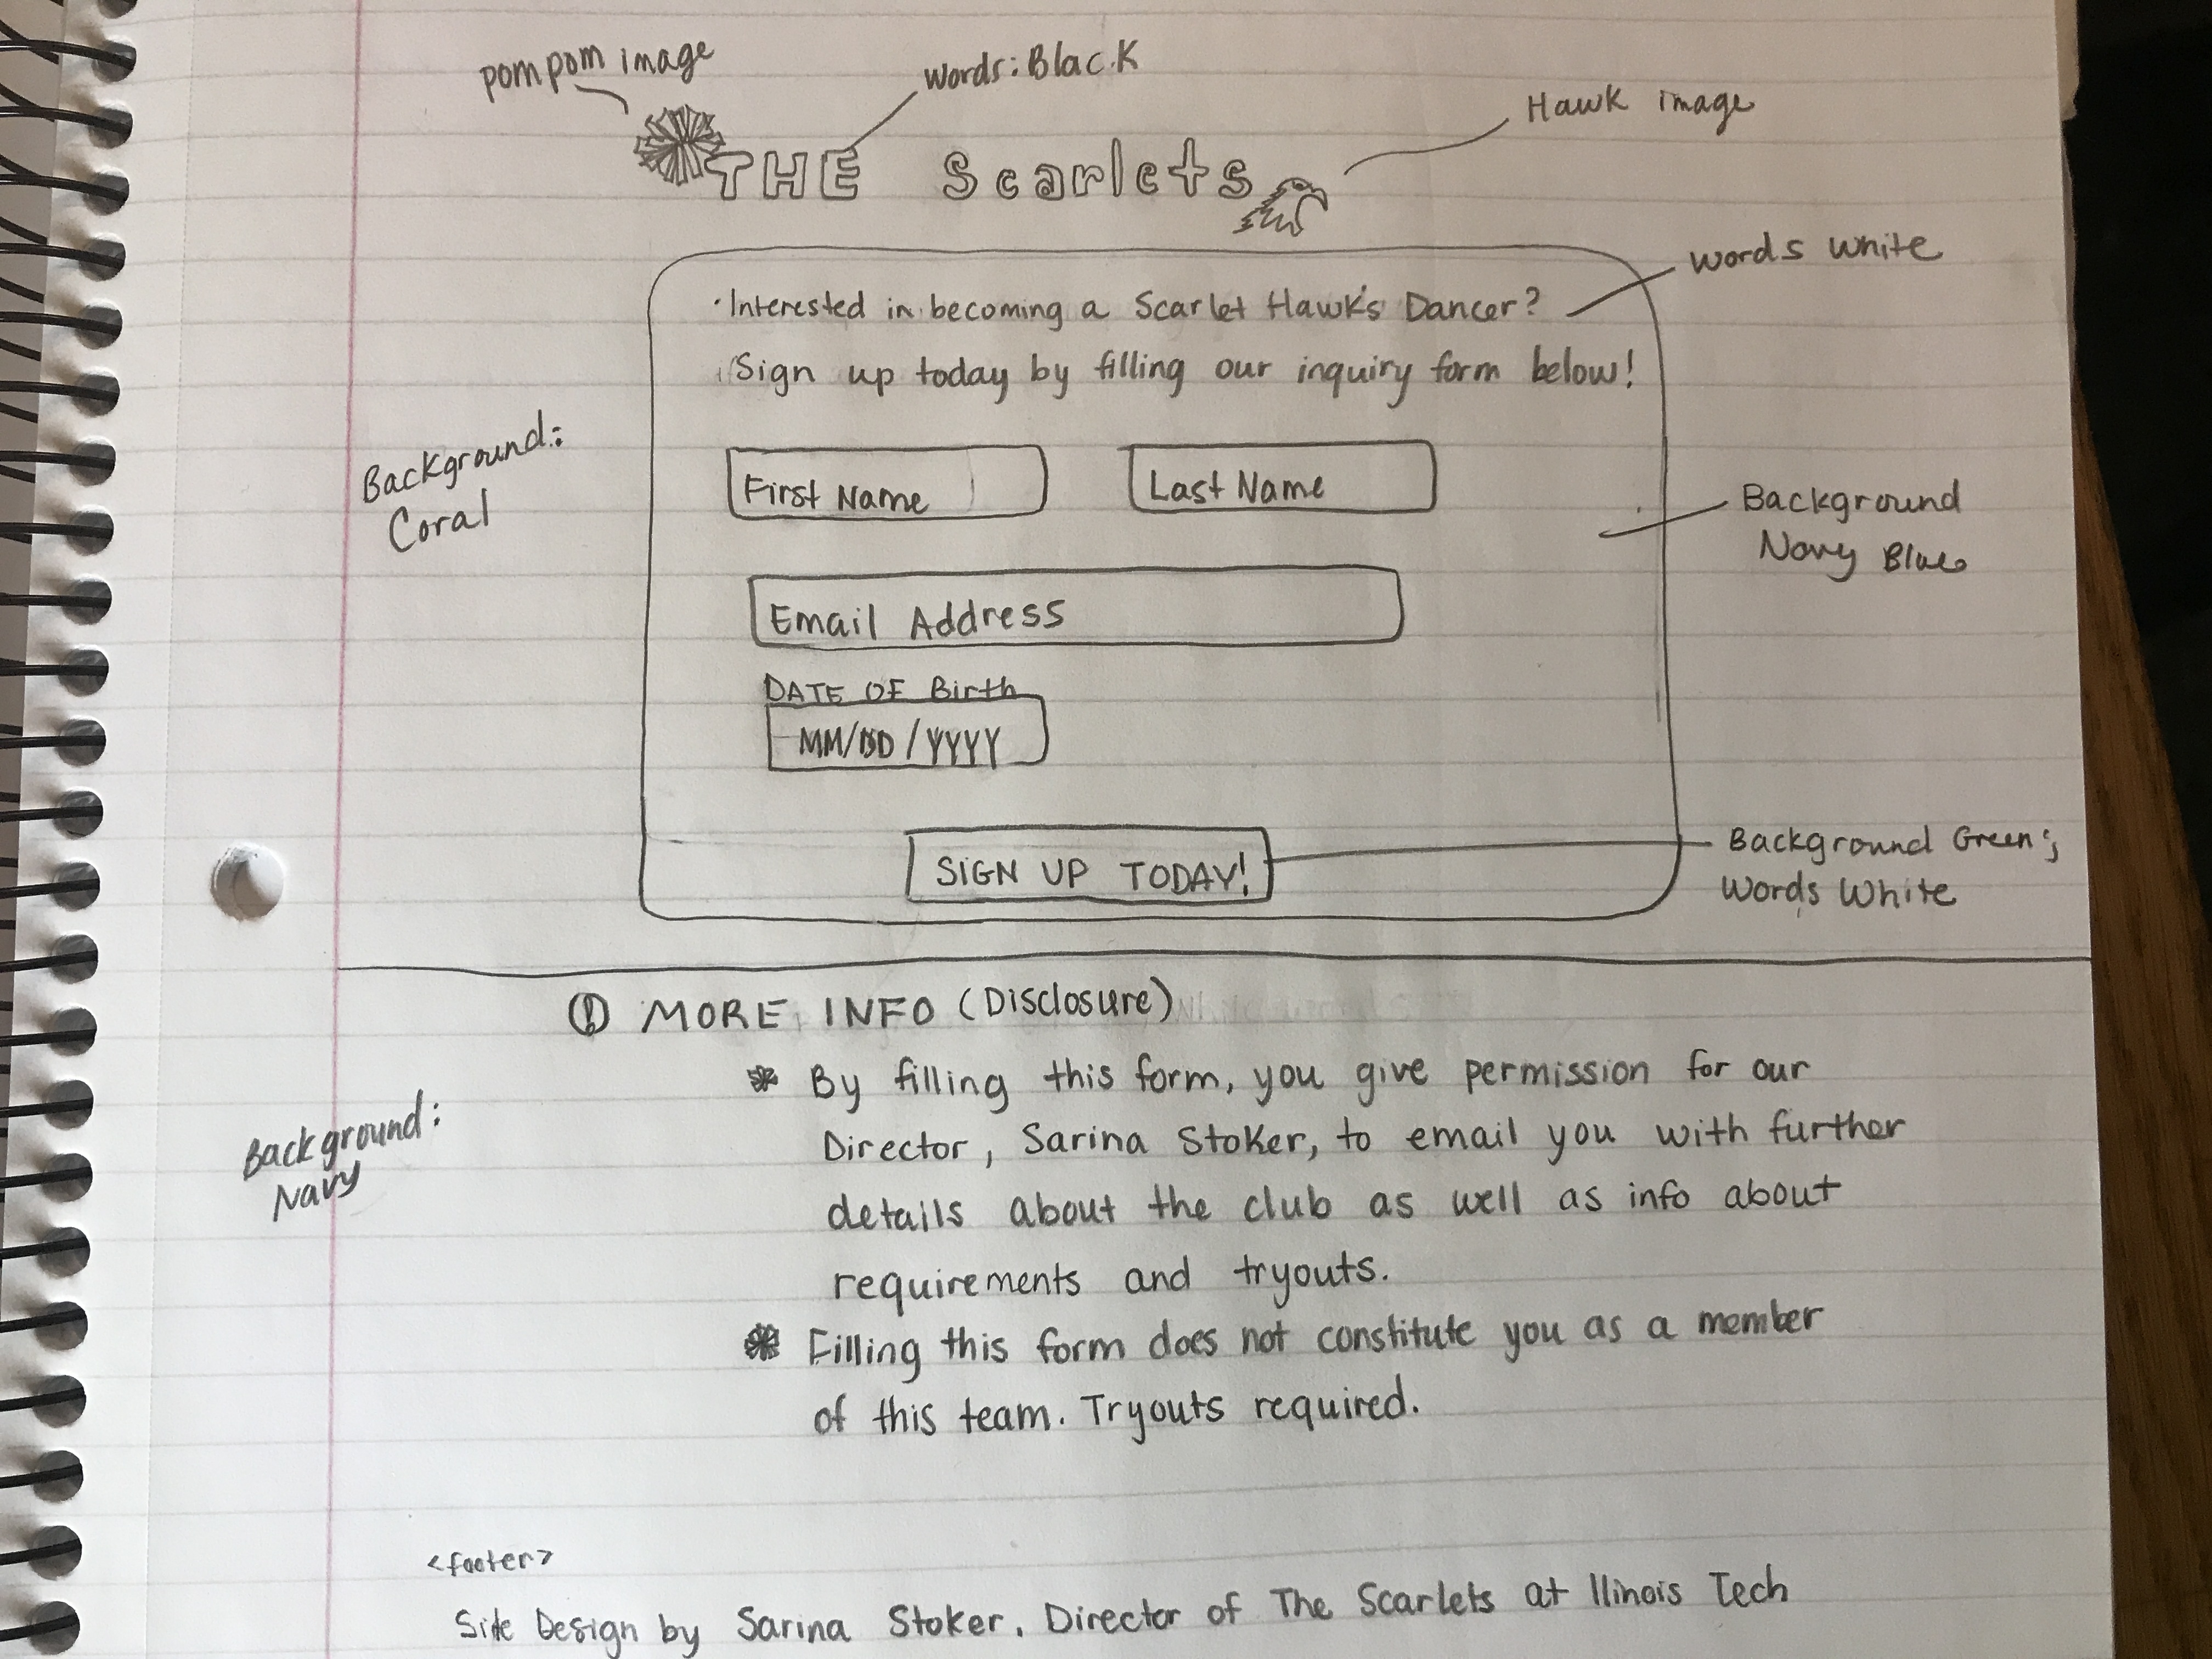 pompom image
words: Black
Hawk image
THE Scarlets
words white
Interested in becoming a Scarlet Hawk's Dancer?
Sign up today by filling our inquiry form below!
Background:
Coral
First Name
Last Name
Background
Navy Blue
Email Address
DATE OF Birth
MM/DD/YYYY
SIGN UP TODAY!
Background Green;
Words White
① MORE INFO (Disclosure)
Background:
Navy
* By filling this form, you give permission for our
Director, Sarina Stoker, to email you with further
details about the club as well as info about
requirements and tryouts.
* Filling this form does not constitute you as a member
of this team. Tryouts required.
<footer>
Site Design by Sarina Stoker, Director of The Scarlets at Illinois Tech